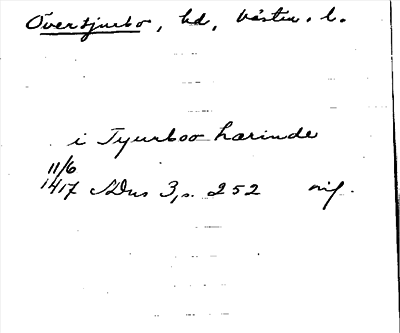 Övertjurbo, hd, Västm. l.
i Tyurboo hærinde
11/6
1417 SDns 3, s. 252 orig.